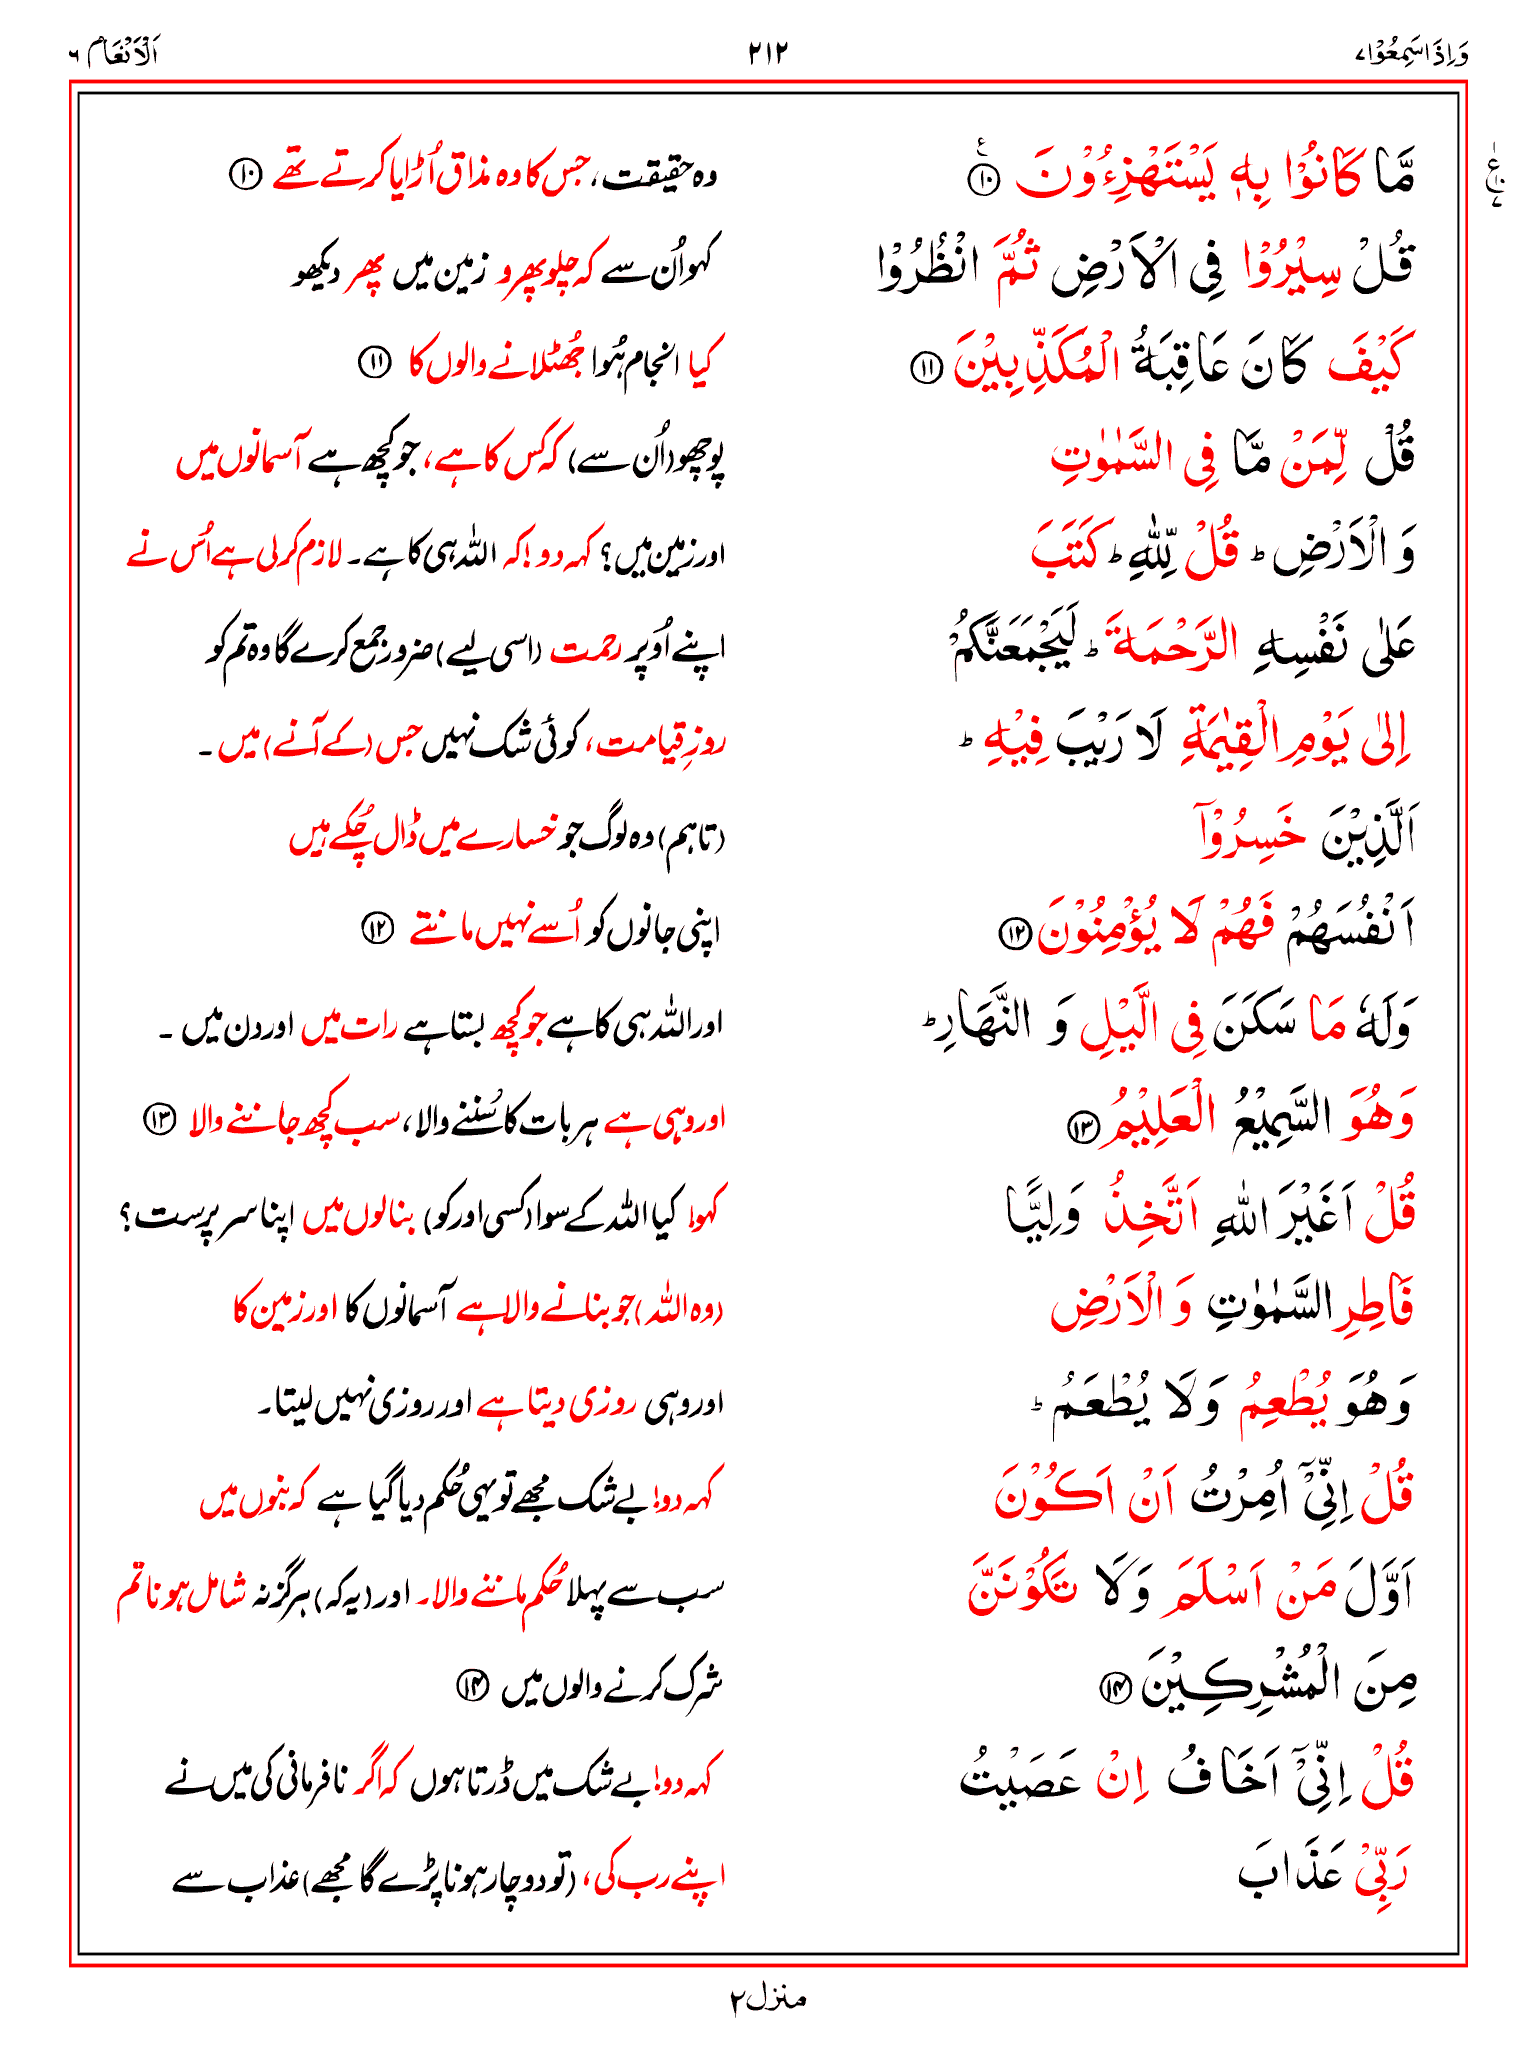 وَاِذَا سَمِعُوْا ٧ ٢١٢ اَلْاَنْعَام ٦
مَّا كَانُوْا بِهٖ يَسْتَهْزِءُوْنَ ۧ ⑩ وہ حقیقت، جس کا وہ مذاق اُڑایا کرتے تھے ⑩
قُلْ سِيْرُوْا فِى الْاَرْضِ ثُمَّ انْظُرُوْا کہو اُن سے کہ چلو پھرو زمین میں پھر دیکھو
كَيْفَ كَانَ عَاقِبَةُ الْمُكَذِّبِيْنَ ⑪ کیا انجام ہُوا جُھٹلانے والوں کا ⑪
قُلْ لِّمَنْ مَّا فِى السَّمٰوٰتِ پوچھو (اُن سے) کہ کس کا ہے، جو کچھ ہے آسمانوں میں
وَ الْاَرْضِ ؕ قُلْ لِّلّٰهِ ؕ كَتَبَ اور زمین میں؟ کہہ دو! کہ اللہ ہی کا ہے۔ لازم کرلی ہے اُس نے
عَلٰى نَفْسِهِ الرَّحْمَةَ ؕ لَيَجْمَعَنَّكُمْ اپنے اُوپر رحمت (اسی لیے) ضرور جمع کرے گا وہ تم کو
اِلٰى يَوْمِ الْقِيٰمَةِ لَا رَيْبَ فِيْهِ ؕ روزِ قیامت، کوئی شک نہیں جس (کے آنے) میں ۔
اَلَّذِيْنَ خَسِرُوْۤا (تاہم) وہ لوگ جو خسارے میں ڈال چُکے ہیں
اَنْفُسَهُمْ فَهُمْ لَا يُؤْمِنُوْنَ ⑫ اپنی جانوں کو اُسے نہیں مانتے ⑫
وَلَهٗ مَا سَكَنَ فِى الَّيْلِ وَ النَّهَارِ ؕ اور اللہ ہی کا ہے جو کچھ بستا ہے رات میں اور دن میں ۔
وَهُوَ السَّمِيْعُ الْعَلِيْمُ ⑬ اور وہی ہے ہر بات کا سُننے والا، سب کچھ جاننے والا ⑬
قُلْ اَغَيْرَ اللّٰهِ اَتَّخِذُ وَلِيًّا کہو! کیا اللہ کے سوا (کسی اور کو) بنا لوں میں اپنا سرپرست؟
فَاطِرِ السَّمٰوٰتِ وَ الْاَرْضِ (وہ اللہ) جو بنانے والا ہے آسمانوں کا اور زمین کا
وَهُوَ يُطْعِمُ وَلَا يُطْعَمُ ؕ اور وہی روزی دیتا ہے اور روزی نہیں لیتا۔
قُلْ اِنِّىْۤ اُمِرْتُ اَنْ اَكُوْنَ کہہ دو! بے شک مجھے تو یہی حُکم دیا گیا ہے کہ بنوں میں
اَوَّلَ مَنْ اَسْلَمَ وَلَا تَكُوْنَنَّ سب سے پہلا حُکم ماننے والا۔ اور (یہ کہ) ہرگز نہ شامل ہونا تم
مِنَ الْمُشْرِكِيْنَ ⑭ شرک کرنے والوں میں ⑭
قُلْ اِنِّىْۤ اَخَافُ اِنْ عَصَيْتُ کہہ دو! بے شک میں ڈرتا ہوں کہ اگر نافرمانی کی میں نے
رَبِّىْ عَذَابَ اپنے رب کی، (تو دوچار ہونا پڑے گا مجھے) عذاب سے
منزل ٢